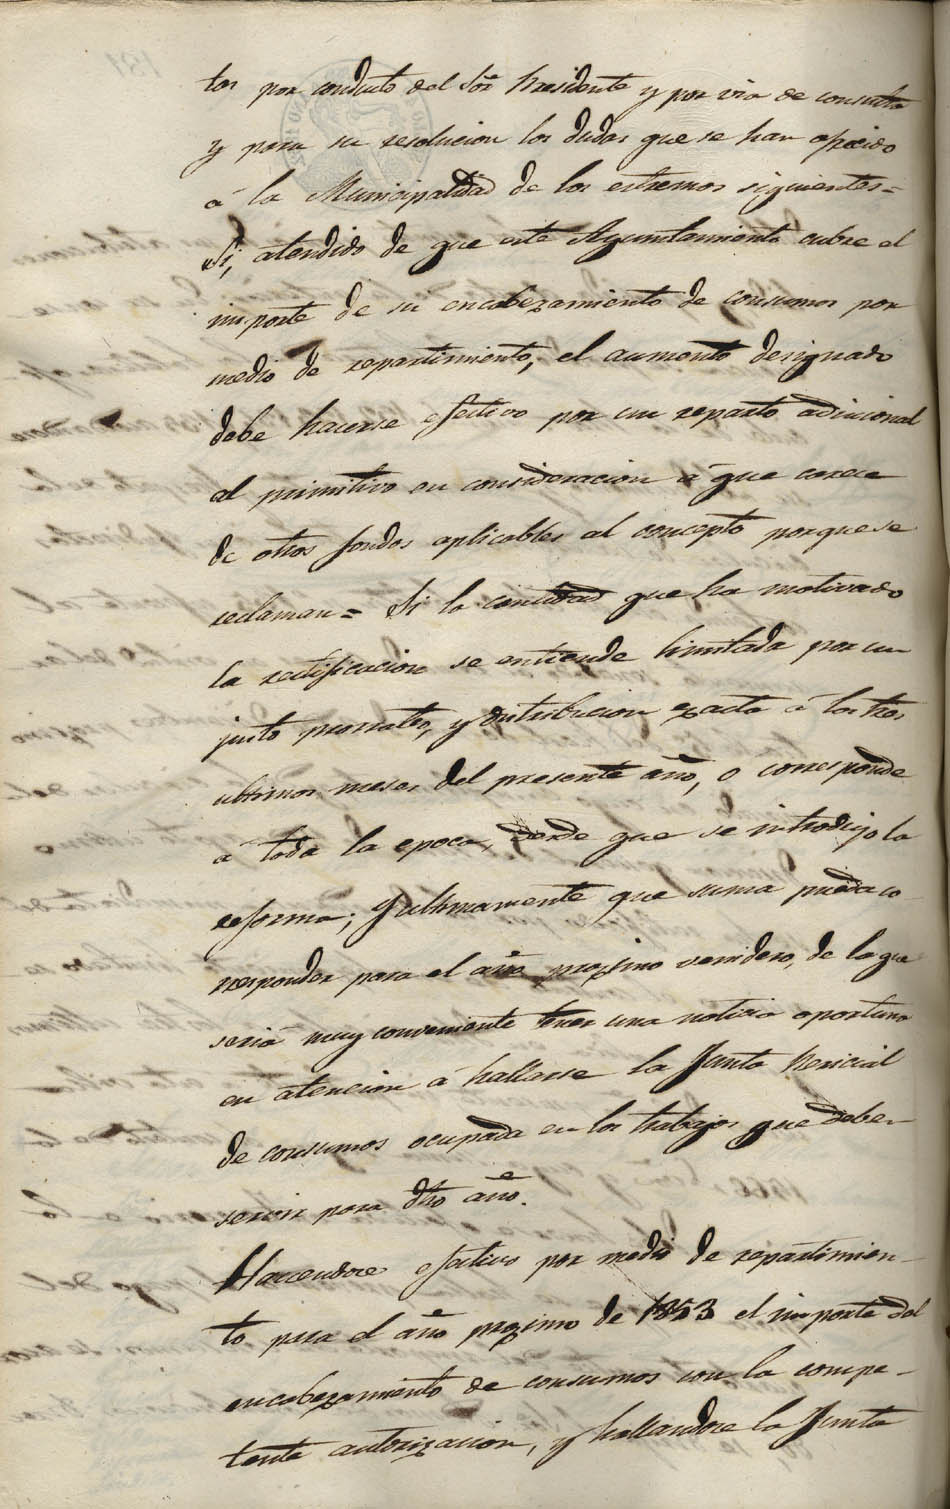 tos por conducto del Sor Presidente y por via de consulta
y para su resolucion las dudas que se han ofrecido
á la Municipalidad de los estremos siguientes =
Si, atendido de que este Ayuntamiento cubre el
importe de su encabezamiento de consumos por
medio de repartimiento, el aumento designado
debe hacerse efectivo por un reparto adicional
al primitivo en consideracion á que carece
de otros fondos aplicables al concepto porque se
reclaman = Si la cantidad que ha motivado
la rectificacion se entiende limitada por un
justo prorrateo, y distribucion exacta á los tres
ultimos meses del presente año, o corresponde
á toda la epoca, desde que se introdujo la
reforma; y ultimamente que suma pueda co
rresponder para el año procsimo venidero, de la que
seria muy conveniente tener una noticia oportuna
en atencion á hallarse la Junta Pericial
de consumos ocupada en los trabajos que deben
servir para dho año.
Haciendose efectivo por medio de repartimien-
to para el año procsimo de 1853 el importe del
encabezamiento de consumos con la compe-
tente autorizacion, y hallandose la Junta